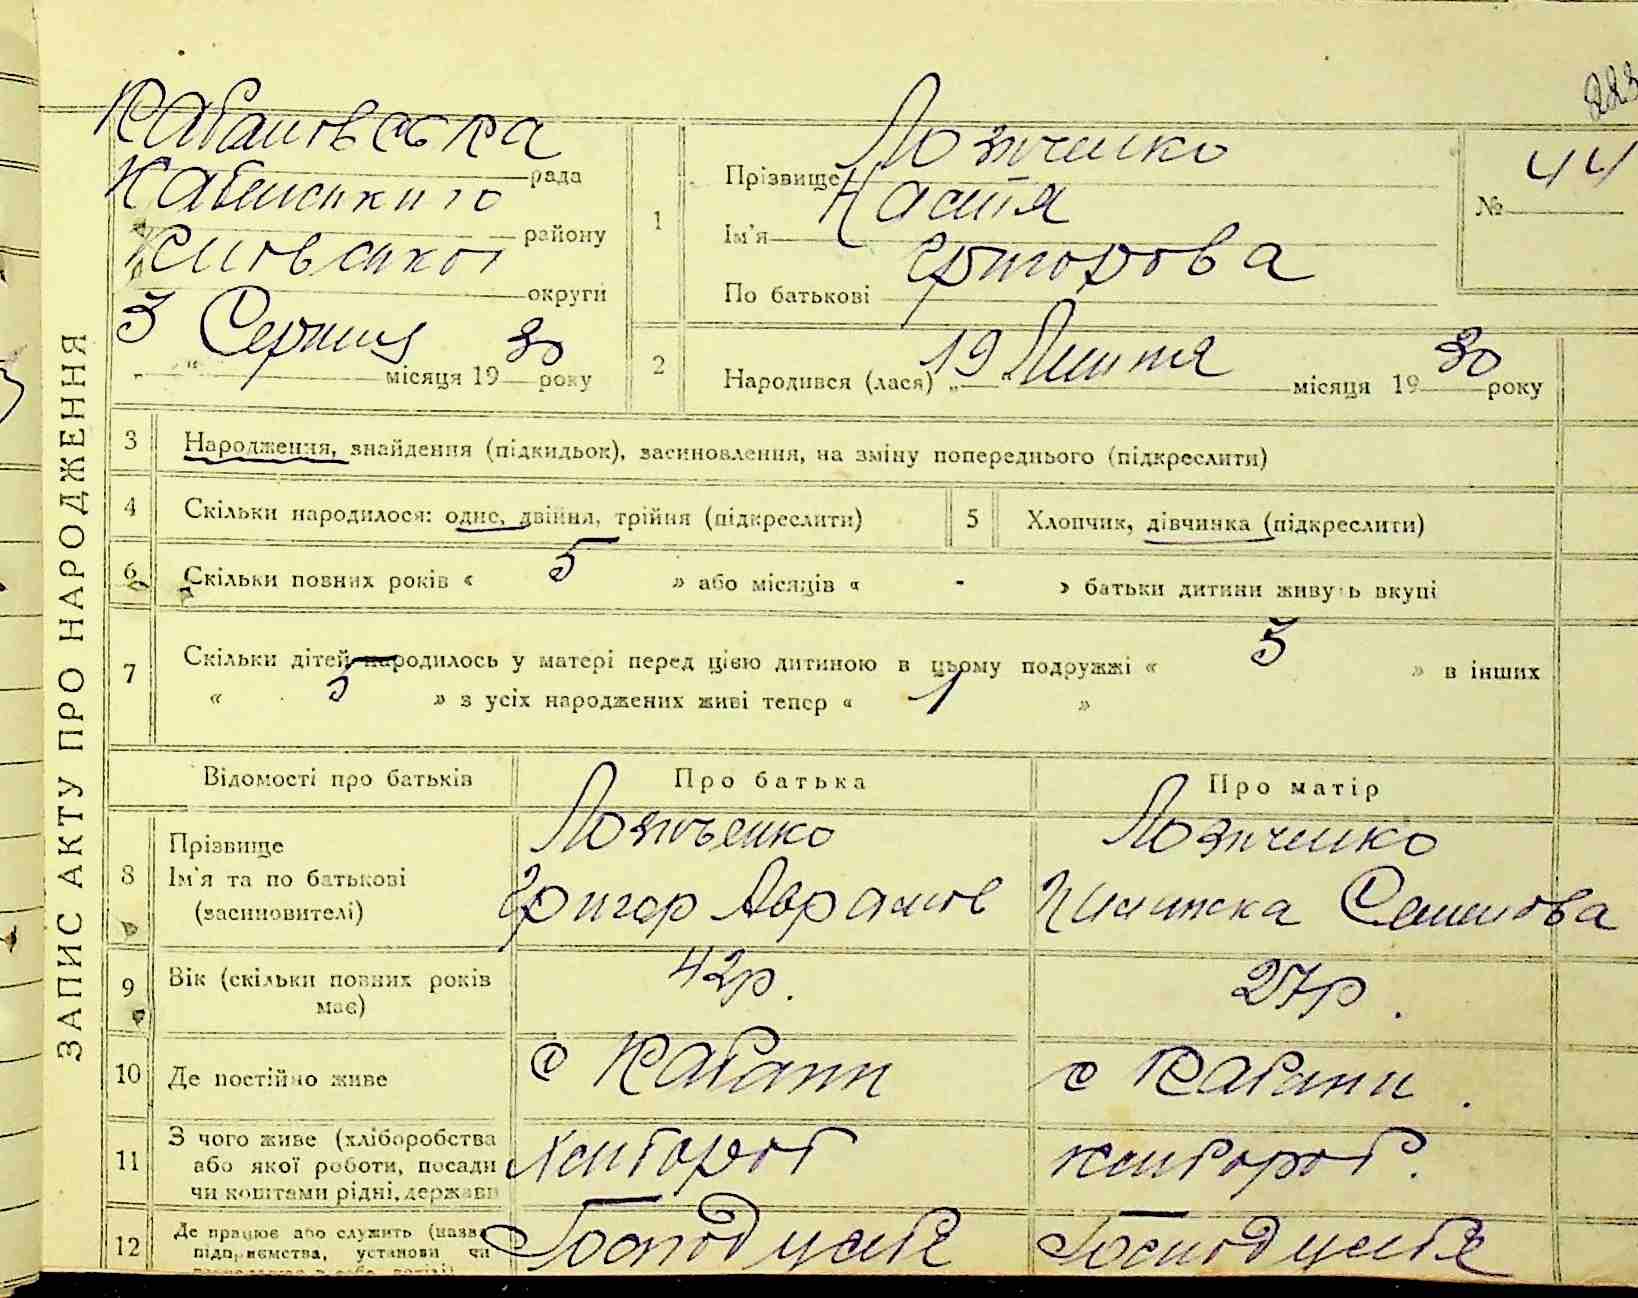 223
ЗАПИС АКТУ ПРО НАРОДЖЕННЯ
Кабановська рада
району
округи
3 Серпня місяця 1930 року
1 Прізвище
Ім'я Настя
По батькові Григорова
№ 44
2 Народився (лася) „19" Липня місяця 1930 року
3 Народження, знайдення (підкидьок), засиновлення, на зміну попереднього (підкреслити)
4 Скільки народилося: одне, двійня, трійня (підкреслити)
5 Хлопчик, дівчинка (підкреслити)
6 Скільки повних років « 5 » або місяців « - » батьки дитини живуть вкупі
7 Скільки дітей народилось у матері перед цією дитиною в цьому подружжі « 3 » в інших
« » з усіх народжених живі тепер « 1 »
Відомості про батьків Про батька Про матір
8 Прізвище
Ім'я та по батькові Григор Аврамов
(засиновителі)
9 Вік (скільки повних років має) 42р. 27р.
10 Де постійно живе с Кабани с Кабани.
11 З чого живе (хліборобства
або якої роботи, посади хлібороб хлібороб.
чи коштами рідні, держави
12 Де працює або служить (назва
підприємства, установи чи